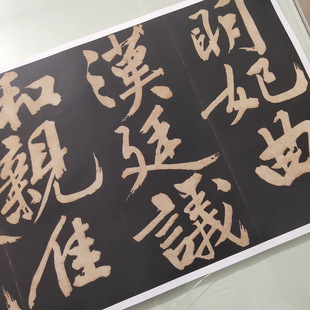 明妃曲
漢廷議
和親佳